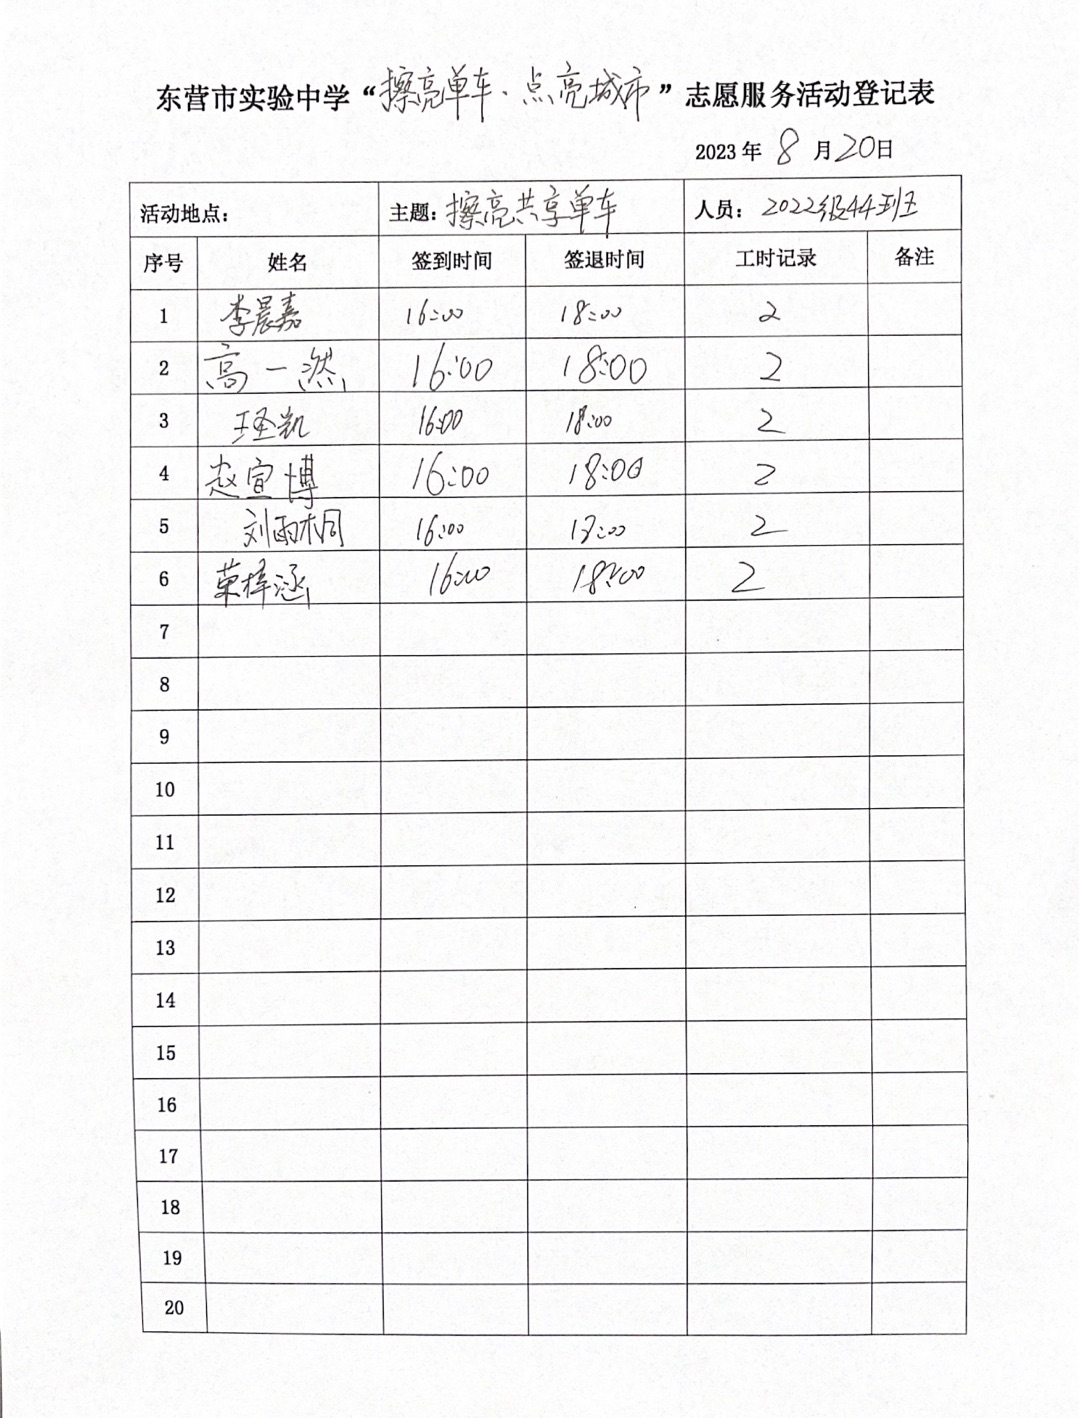 东营市实验中学“擦亮单车·点亮城市”志愿服务活动登记表
2023年 8 月20日
活动地点： 主题：擦亮共享单车 人员：2022级44班
序号 姓名 签到时间 签退时间 工时记录 备注
1 李晨嘉 16:00 18:00 2
2 高一然 16:00 18:00 2
3 王圣凯 16:00 18:00 2
4 赵宣博 16:00 18:00 2
5 刘雨桐 16:00 18:00 2
6 荣梓涵 16:00 18:00 2
7
8
9
10
11
12
13
14
15
16
17
18
19
20